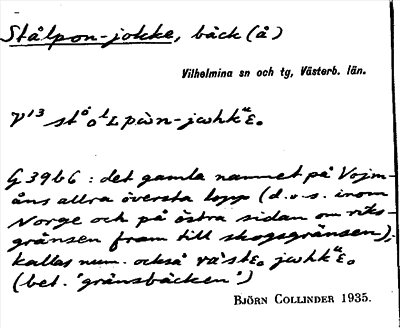 Stålpon-jokke, bäck (å)
Vilhelmina sn och tg, Västerb. län.
G 3966 : det gamla namnet på Vojm-
åns allra översta lopp (d.v.s. inom
Norge och på östra sidan om riks-
gränsen fram till skogsgränsen),
kallas num. också
(bet. 'gränsbäcken')
BJÖRN COLLINDER 1935.